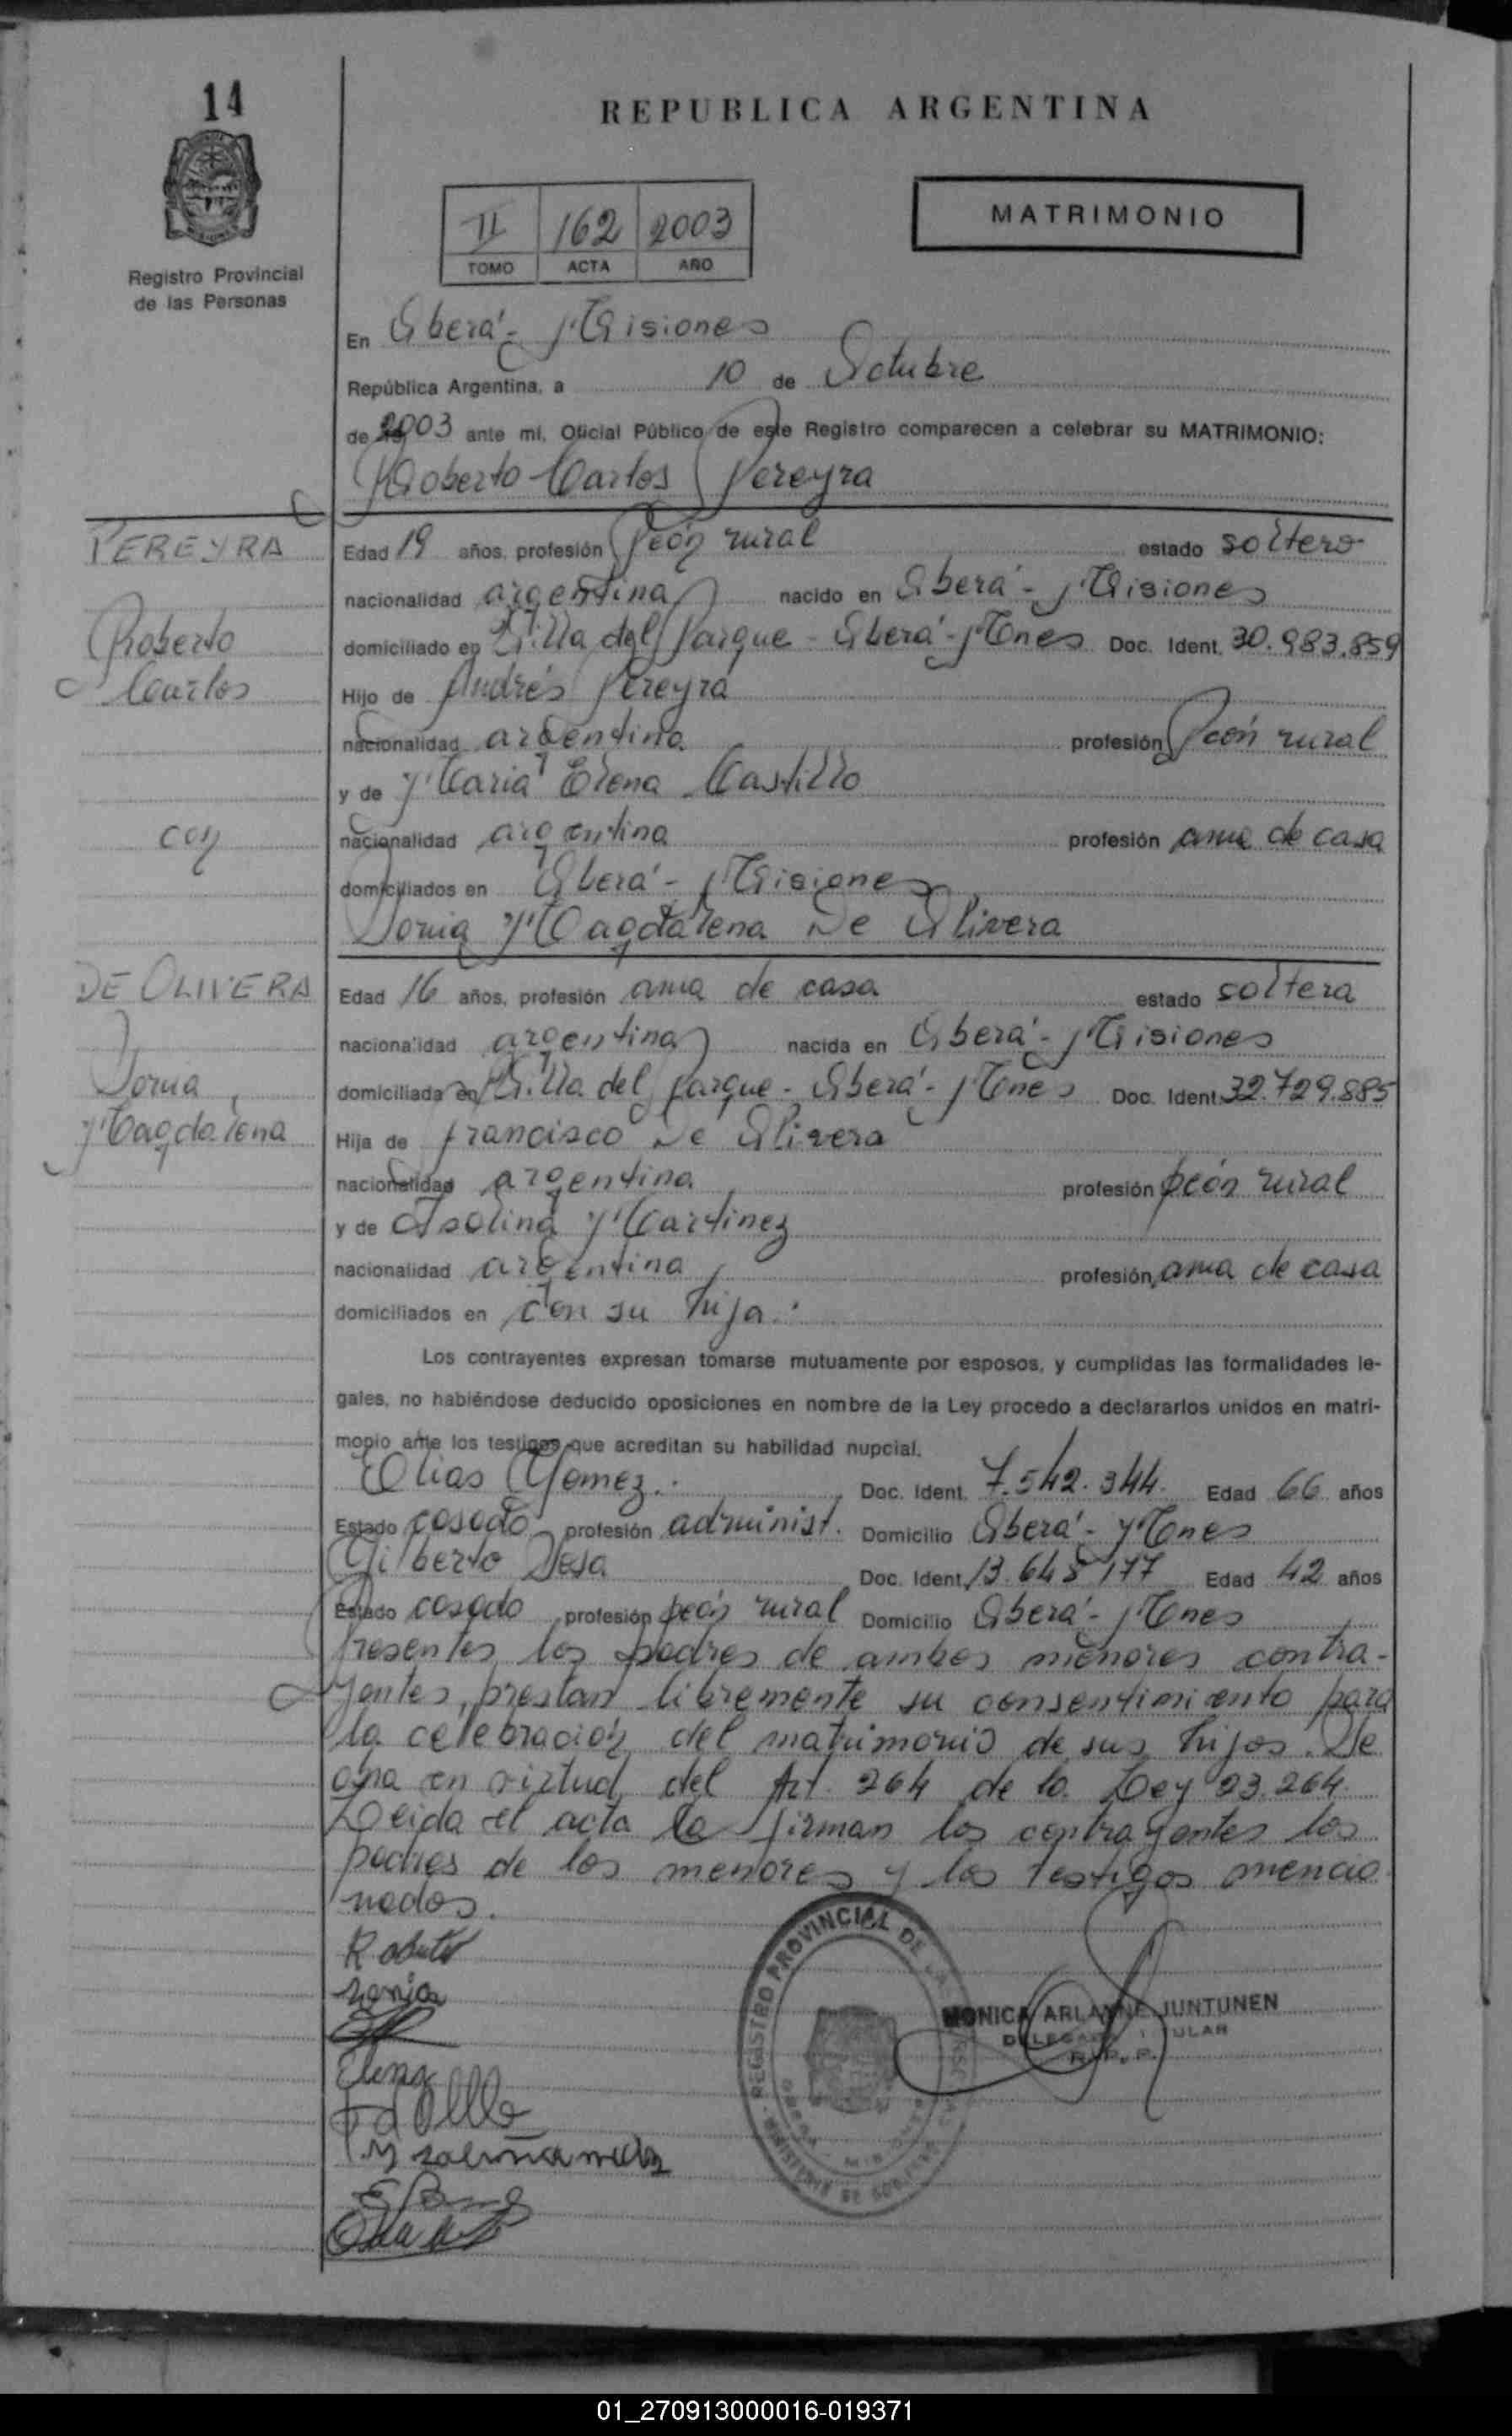 14
REPUBLICA ARGENTINA
Registro Provincial
de las Personas
II 162 2003
TOMO ACTA AÑO
MATRIMONIO
En Oberá - Misiones
República Argentina, a 10 de Octubre
de 2003 ante mí, Oficial Público de este Registro comparecen a celebrar su MATRIMONIO:
Roberto Carlos Pereyra
PEREYRA
Roberto
Carlos
con
DE OLIVERA
Sonia
Magdalena
Edad 19 años, profesión Peón rural estado soltero
nacionalidad argentina nacido en Oberá - Misiones
domiciliado en Villa del Parque - Oberá - Mnes Doc. Ident. 30.983.859
Hijo de Andrés Pereyra
nacionalidad argentina profesión Peón rural
y de Maria Elena Castillo
nacionalidad argentina profesión ama de casa
domiciliados en Oberá - Misiones
Sonia Magdalena De Olivera
Edad 16 años, profesión ama de casa estado soltera
nacionalidad argentina nacida en Oberá - Misiones
domiciliada en Villa del Parque - Oberá - Mnes Doc. Ident. 32.729.885
Hija de Francisco De Olivera
nacionalidad argentina profesión peón rural
y de Isolina Martinez
nacionalidad argentina profesión ama de casa
domiciliados en con su hija.
Los contrayentes expresan tomarse mutuamente por esposos, y cumplidas las formalidades le-
gales, no habiéndose deducido oposiciones en nombre de la Ley procedo a declararlos unidos en matri-
monio ante los testigos que acreditan su habilidad nupcial.
Elias Gomez. Doc. Ident. 7.542.344 Edad 66 años
Estado casado profesión administ. Domicilio Oberá - Mnes
Gilberto Sosa Doc. Ident. 13.645 177 Edad 42 años
Estado casado profesión peón rural Domicilio Oberá - Mnes
Presentes los padres de ambos menores contra-
yentes, prestan libremente su consentimiento para
la celebración del matrimonio de sus hijos. Se
en virtud del Art. 264 de la Ley 23.264.
Leida el acta la firman los contrayentes los
padres de los menores y los testigos mencio
nados.
Roberto
Sonia
Elena
REGISTRO PROVINCIAL DE LAS PERSONAS
MINISTERIO DE GOBIERNO
MONICA ARLANNE JUNTUNEN
DELEGADA TITULAR
R. P. P.
01_270913000016-019371